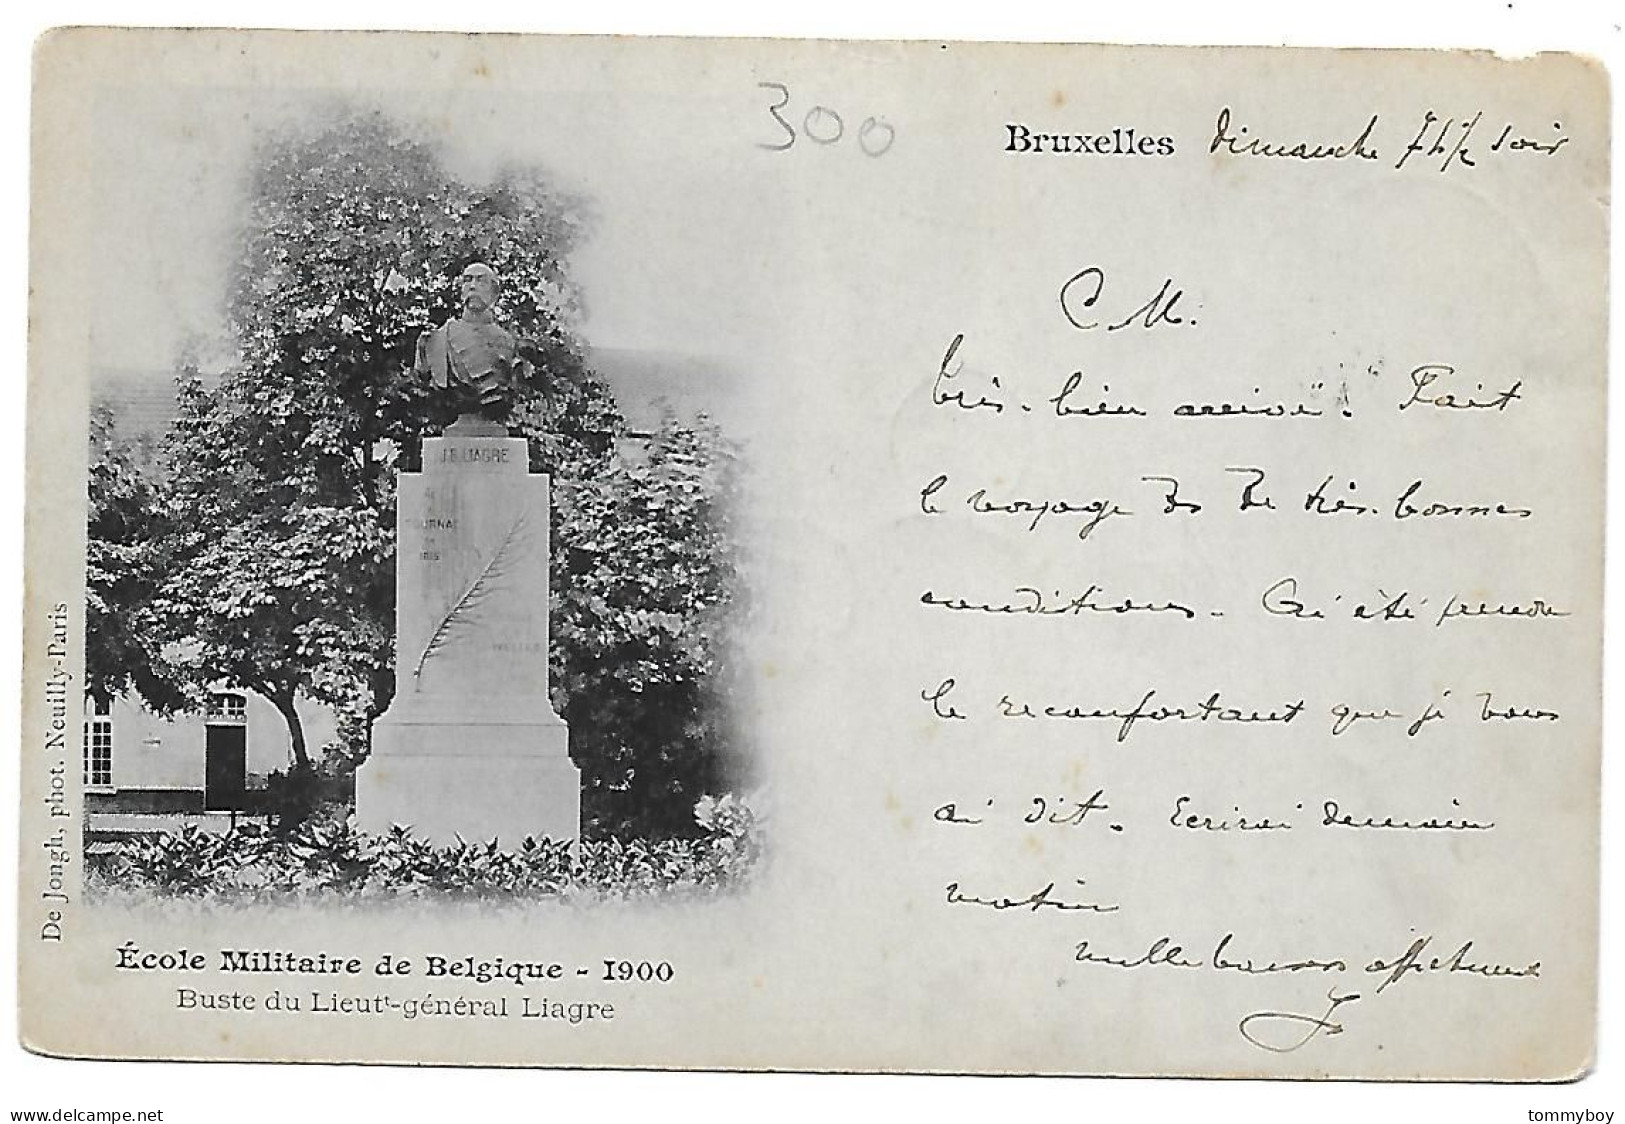 300
Bruxelles Dimanche 7 h 1/2 soir
C M.
Très-bien arrivé. Fait
le voyage ds de très-bonnes
conditions. Ai été
le réconfortant que je vous
ai dit. Ecrirai demain
matin
mille baisers affectueux
J.B. LIAGRE
TOURNAI
1815
IXELLES
De Jongh, phot. Neuilly-Paris
École Militaire de Belgique - 1900
Buste du Lieutt-général Liagre
www.delcampe.net
tommyboy